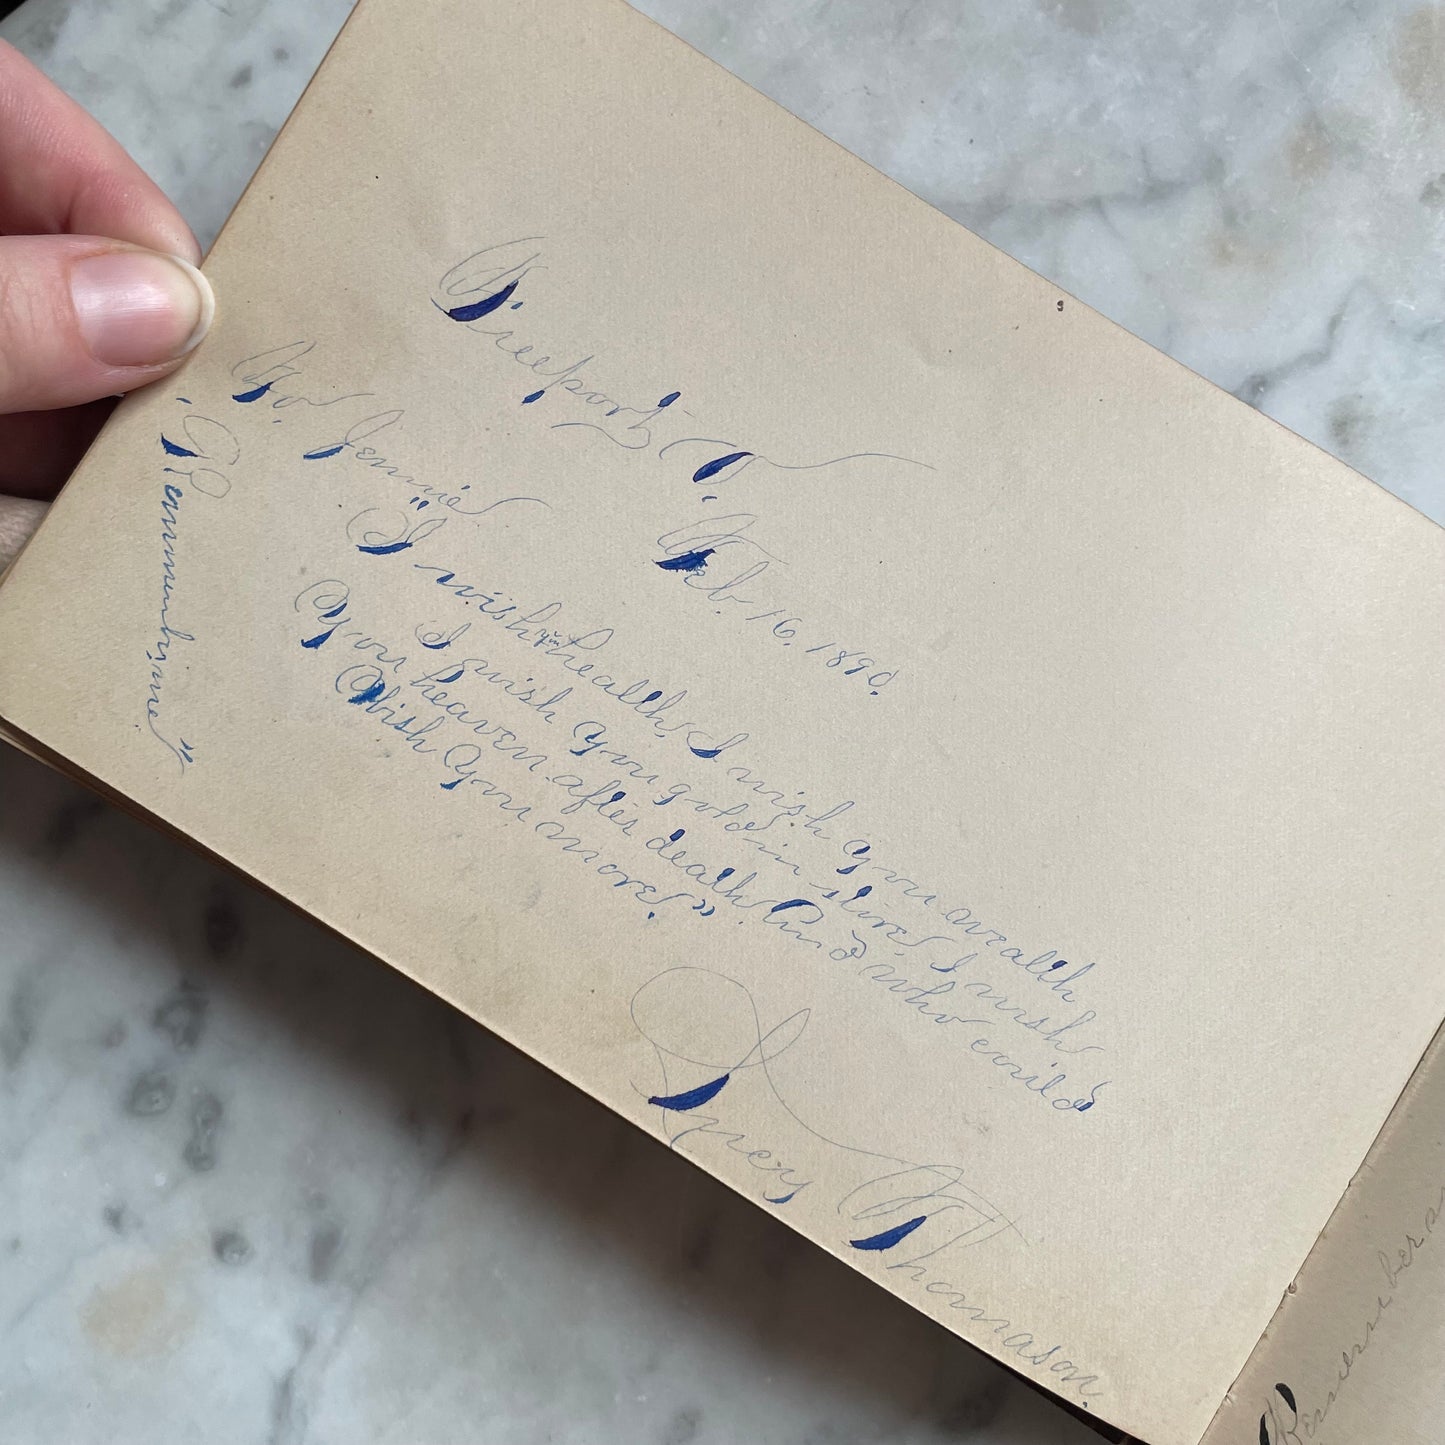 Freeport, O.
Feb. 16. 1890.
To. Jennie
"I wish you health, I wish you wealth
I wish you gold in store, I wish
You heaven after death And who could
Wish you more."
Thomason.
"Remember me"
Remember